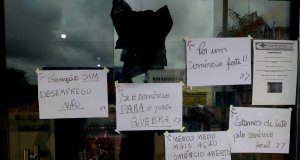 " Prevenção SIM
DESEMPREGO
NÃO "
" Se o comércio
PARA o país
QUEBRA "
" Por um
comércio forte!! "
" MENOS MEDO
MAIS AÇÃO
COMÉRCIO ABERTO
" Estamos de luto
pelo comércio
local "